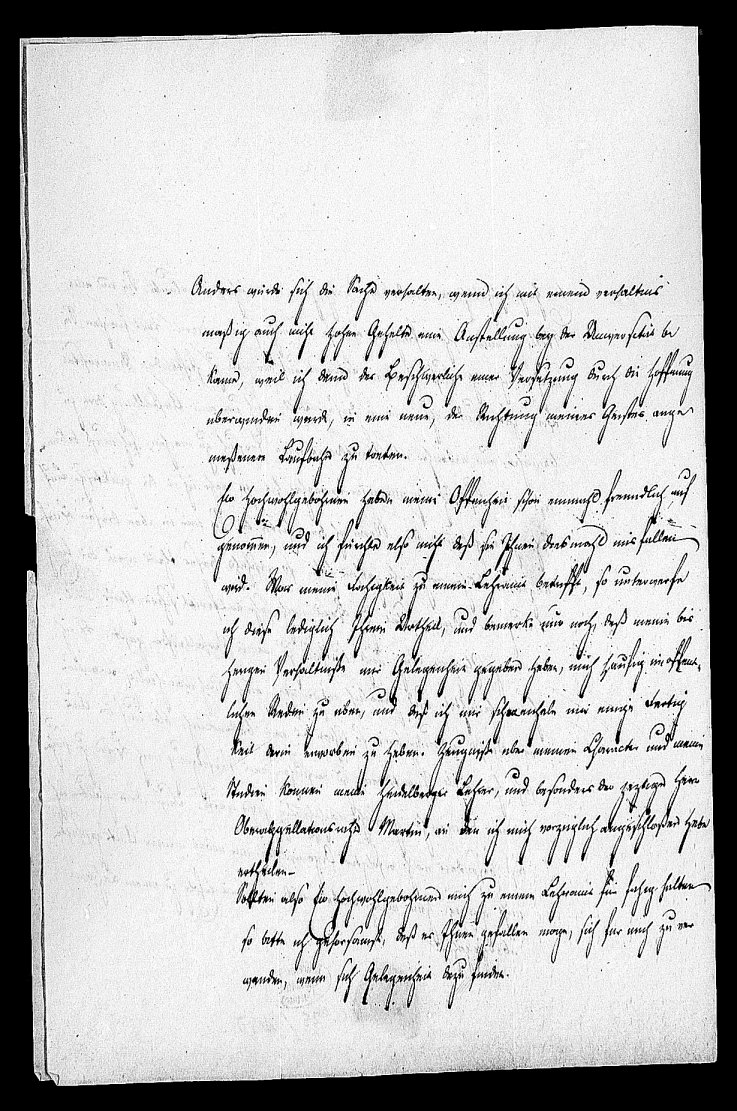 Anders würde sich die Sache verhalten, wenn ich mit einem verhältnis
mäßig auch nicht hohen Gehalte eine Anstellung bey der Universität be
käme, weil ich dann das Beschwerliche einer Versetzung durch die Hoffnung
überwinden würde, in eine neue, der Richtung meines Geistes ange
meßenere Laufbahn zu treten.
Ew Hochwohlgebohren haben meine Offenheit schon einmahl freundlich auf
genom̄en, und ich fürchte also nicht daß sie Ihnen diesmahl misfallen
wird. Was meine Fähigkeit zu einem Lehramte betrifft, so unterwerfe
ich diese lediglich Ihrem Urtheil, und bemerke nur noch, daß meine bis
herigen Verhältniße mir Gelegenheit gegeben haben, mich häufig im öffent-
lichen Reden zu üben, und daß ich mir schmeichele mir einige Fertig
keit darin erworben zu haben. Zeugniße über meinen Character und meine
Studien können meine Heidelberger Lehrer, und besonders der jezige Herr
Oberappellationsrath Martin, an den ich mich vorzüglich angeschloßen habe
ertheilen-
Sollten also Ew Hochwohlgebohren mich zu einem Lehramte für fähig halten
so bitte ich gehorsamst, daß es Ihnen gefallen möge, sich für mich zu ver
wenden, wenn sich Gelegenheit dazu findet.